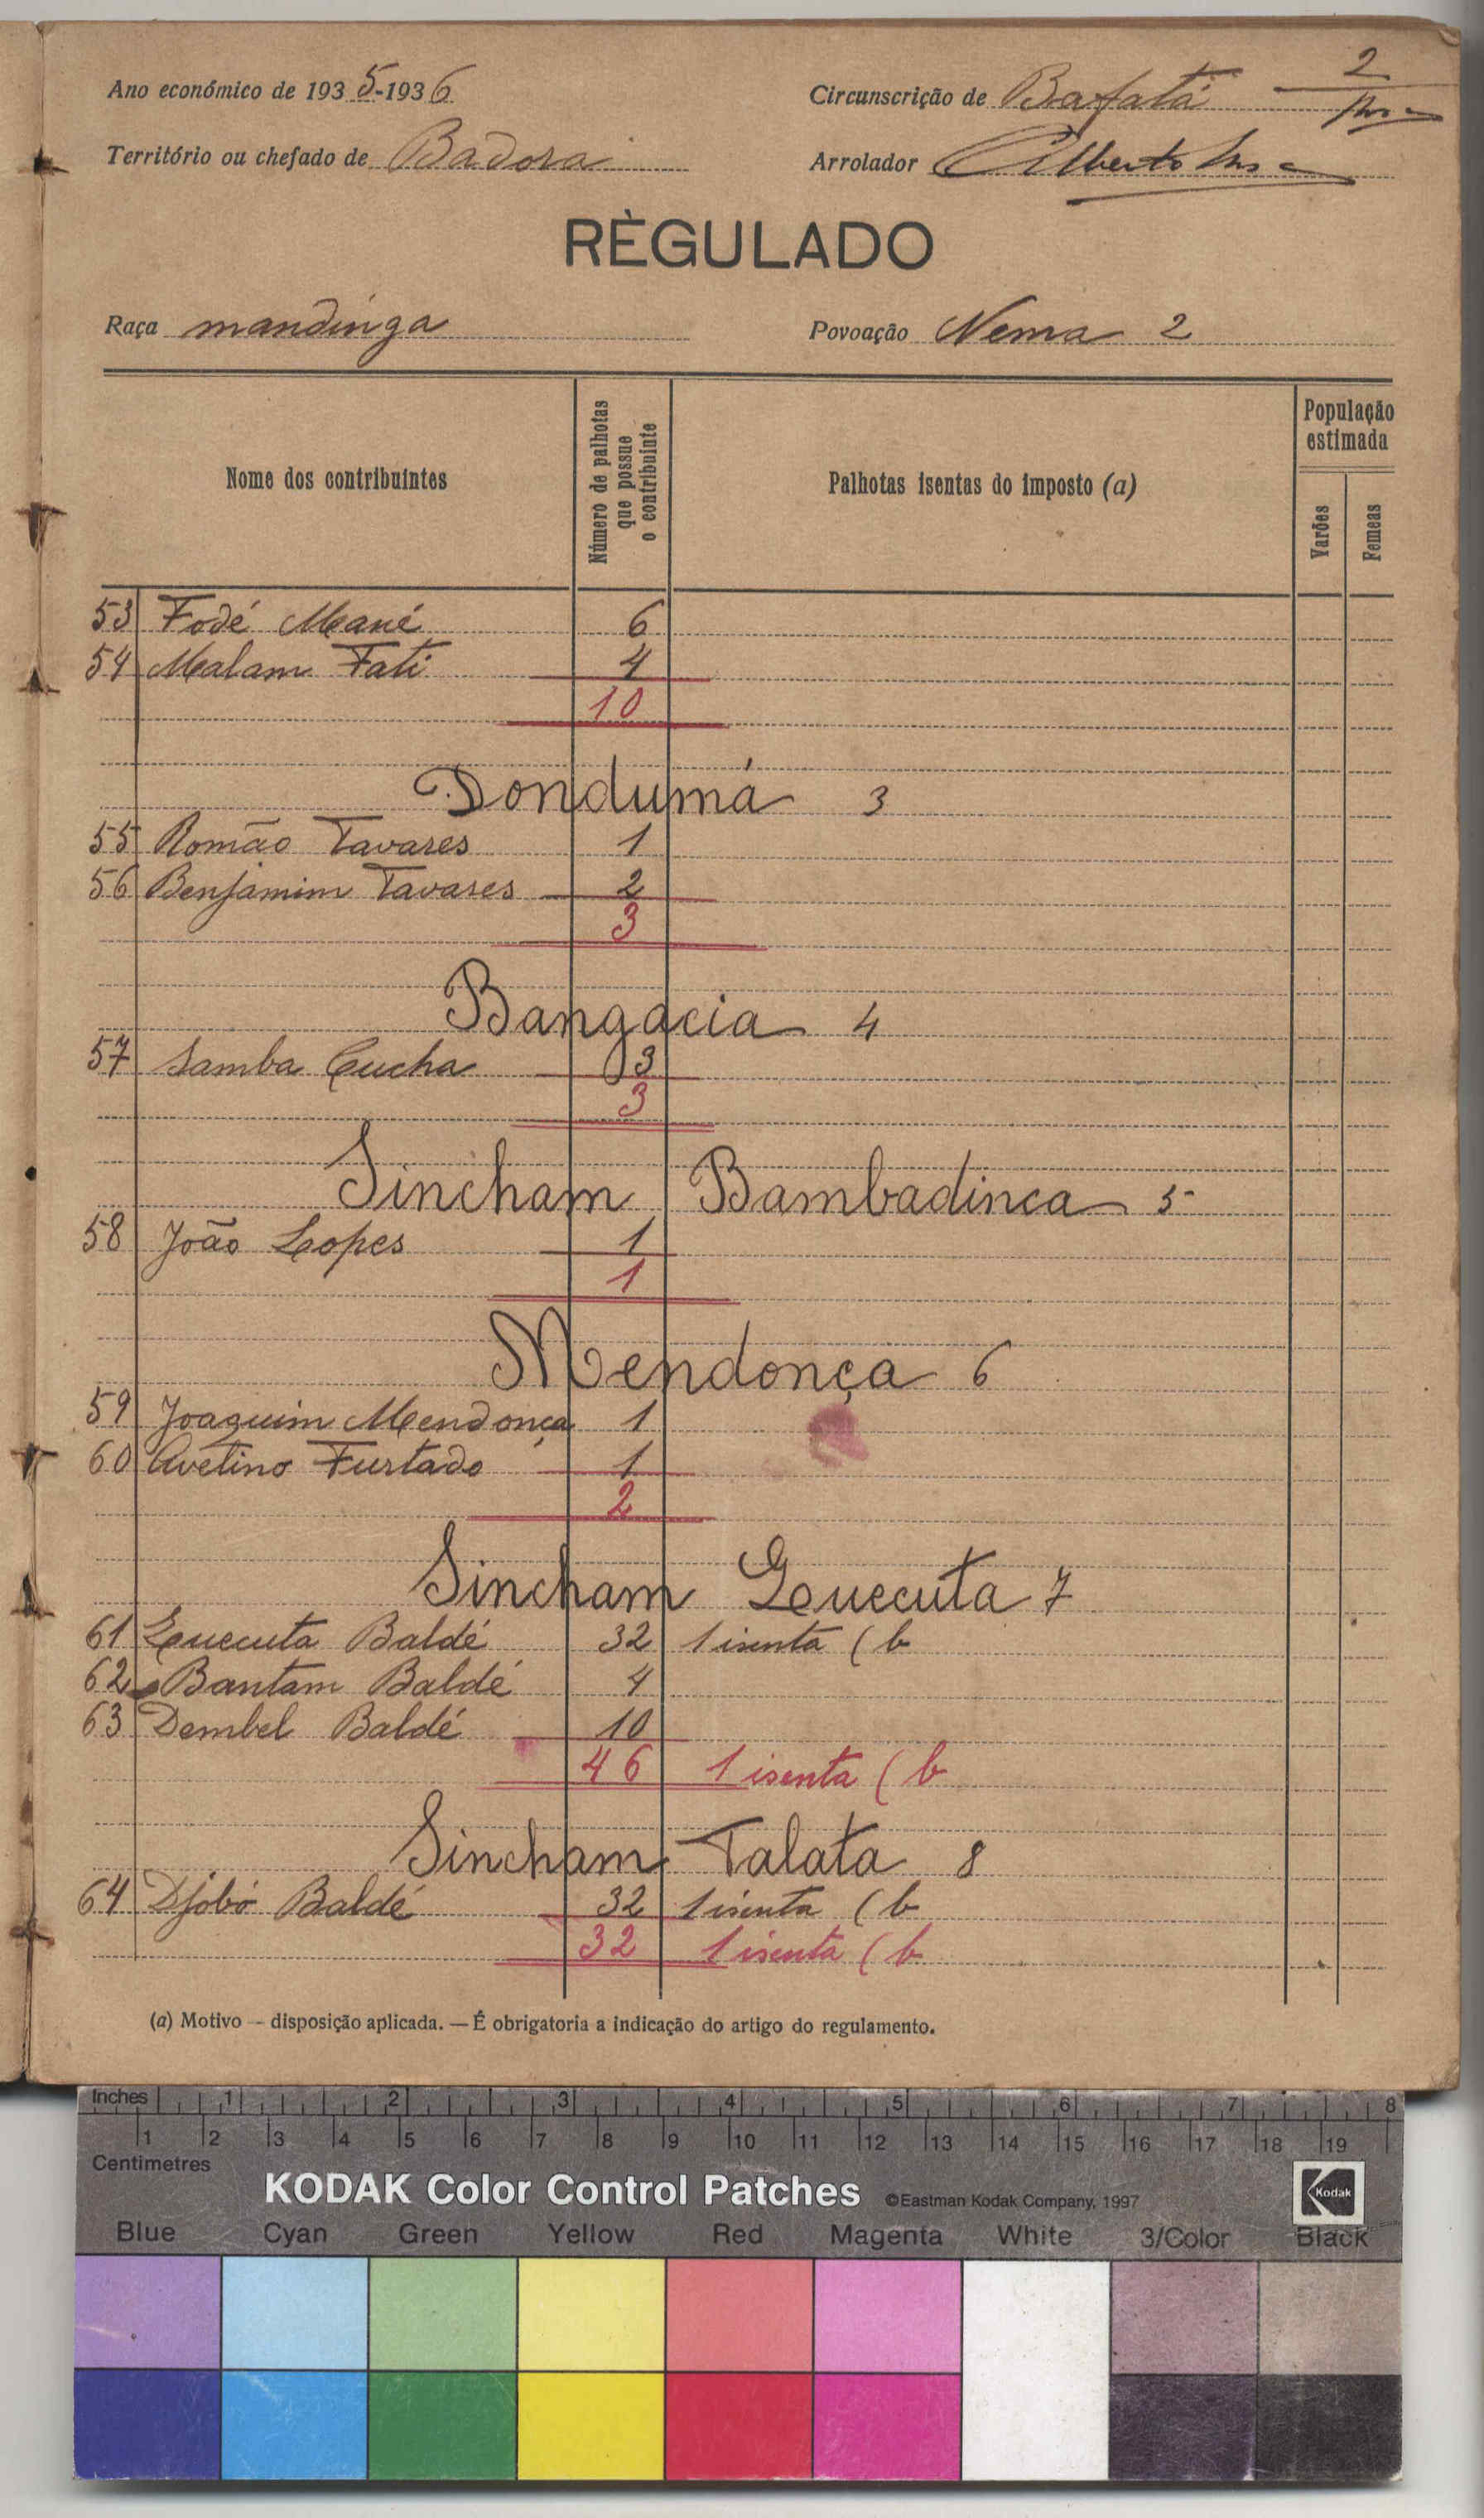 Ano económico de 1935-1936
Circunscrição de Bafatá 2
Território ou chefado de Badora
Arrolador Alberto
RÈGULADO
Raça mandinga
Povoação Nema 2
Nome dos contribuintes
Número de palhotas que possue o contribuinte
Palhotas isentas do imposto (a)
População estimada
Varões
Femeas
53 Fodé Mané 6
54 Malam Fati 4
10
Dondumá 3
55 Romão Tavares 1
56 Benjamim Tavares 2
3
Bangacia 4
57 Samba Cucha 3
3
Sincham Bambadinca 5
58 João Lopes 1
1
Mendonça 6
59 Joaquim Mendonça 1
60 Avelino Furtado 1
2
Sincham Quecuta 7
61 Quecuta Baldé 32 1 isenta (b
62 Bantam Baldé 4
63 Dembel Baldé 10
46 1 isenta (b
Sincham Talata 8
64 Djobó Baldé 32 1 isenta (b
32 1 isenta (b
(a) Motivo — disposição aplicada. — É obrigatoria a indicação do artigo do regulamento.
Inches 1 2 3 4 5 6 7 8
1 2 3 4 5 6 7 8 9 10 11 12 13 14 15 16 17 18 19
Centimetres
KODAK Color Control Patches ©Eastman Kodak Company, 1997 Kodak
Blue Cyan Green Yellow Red Magenta White 3/Color Black